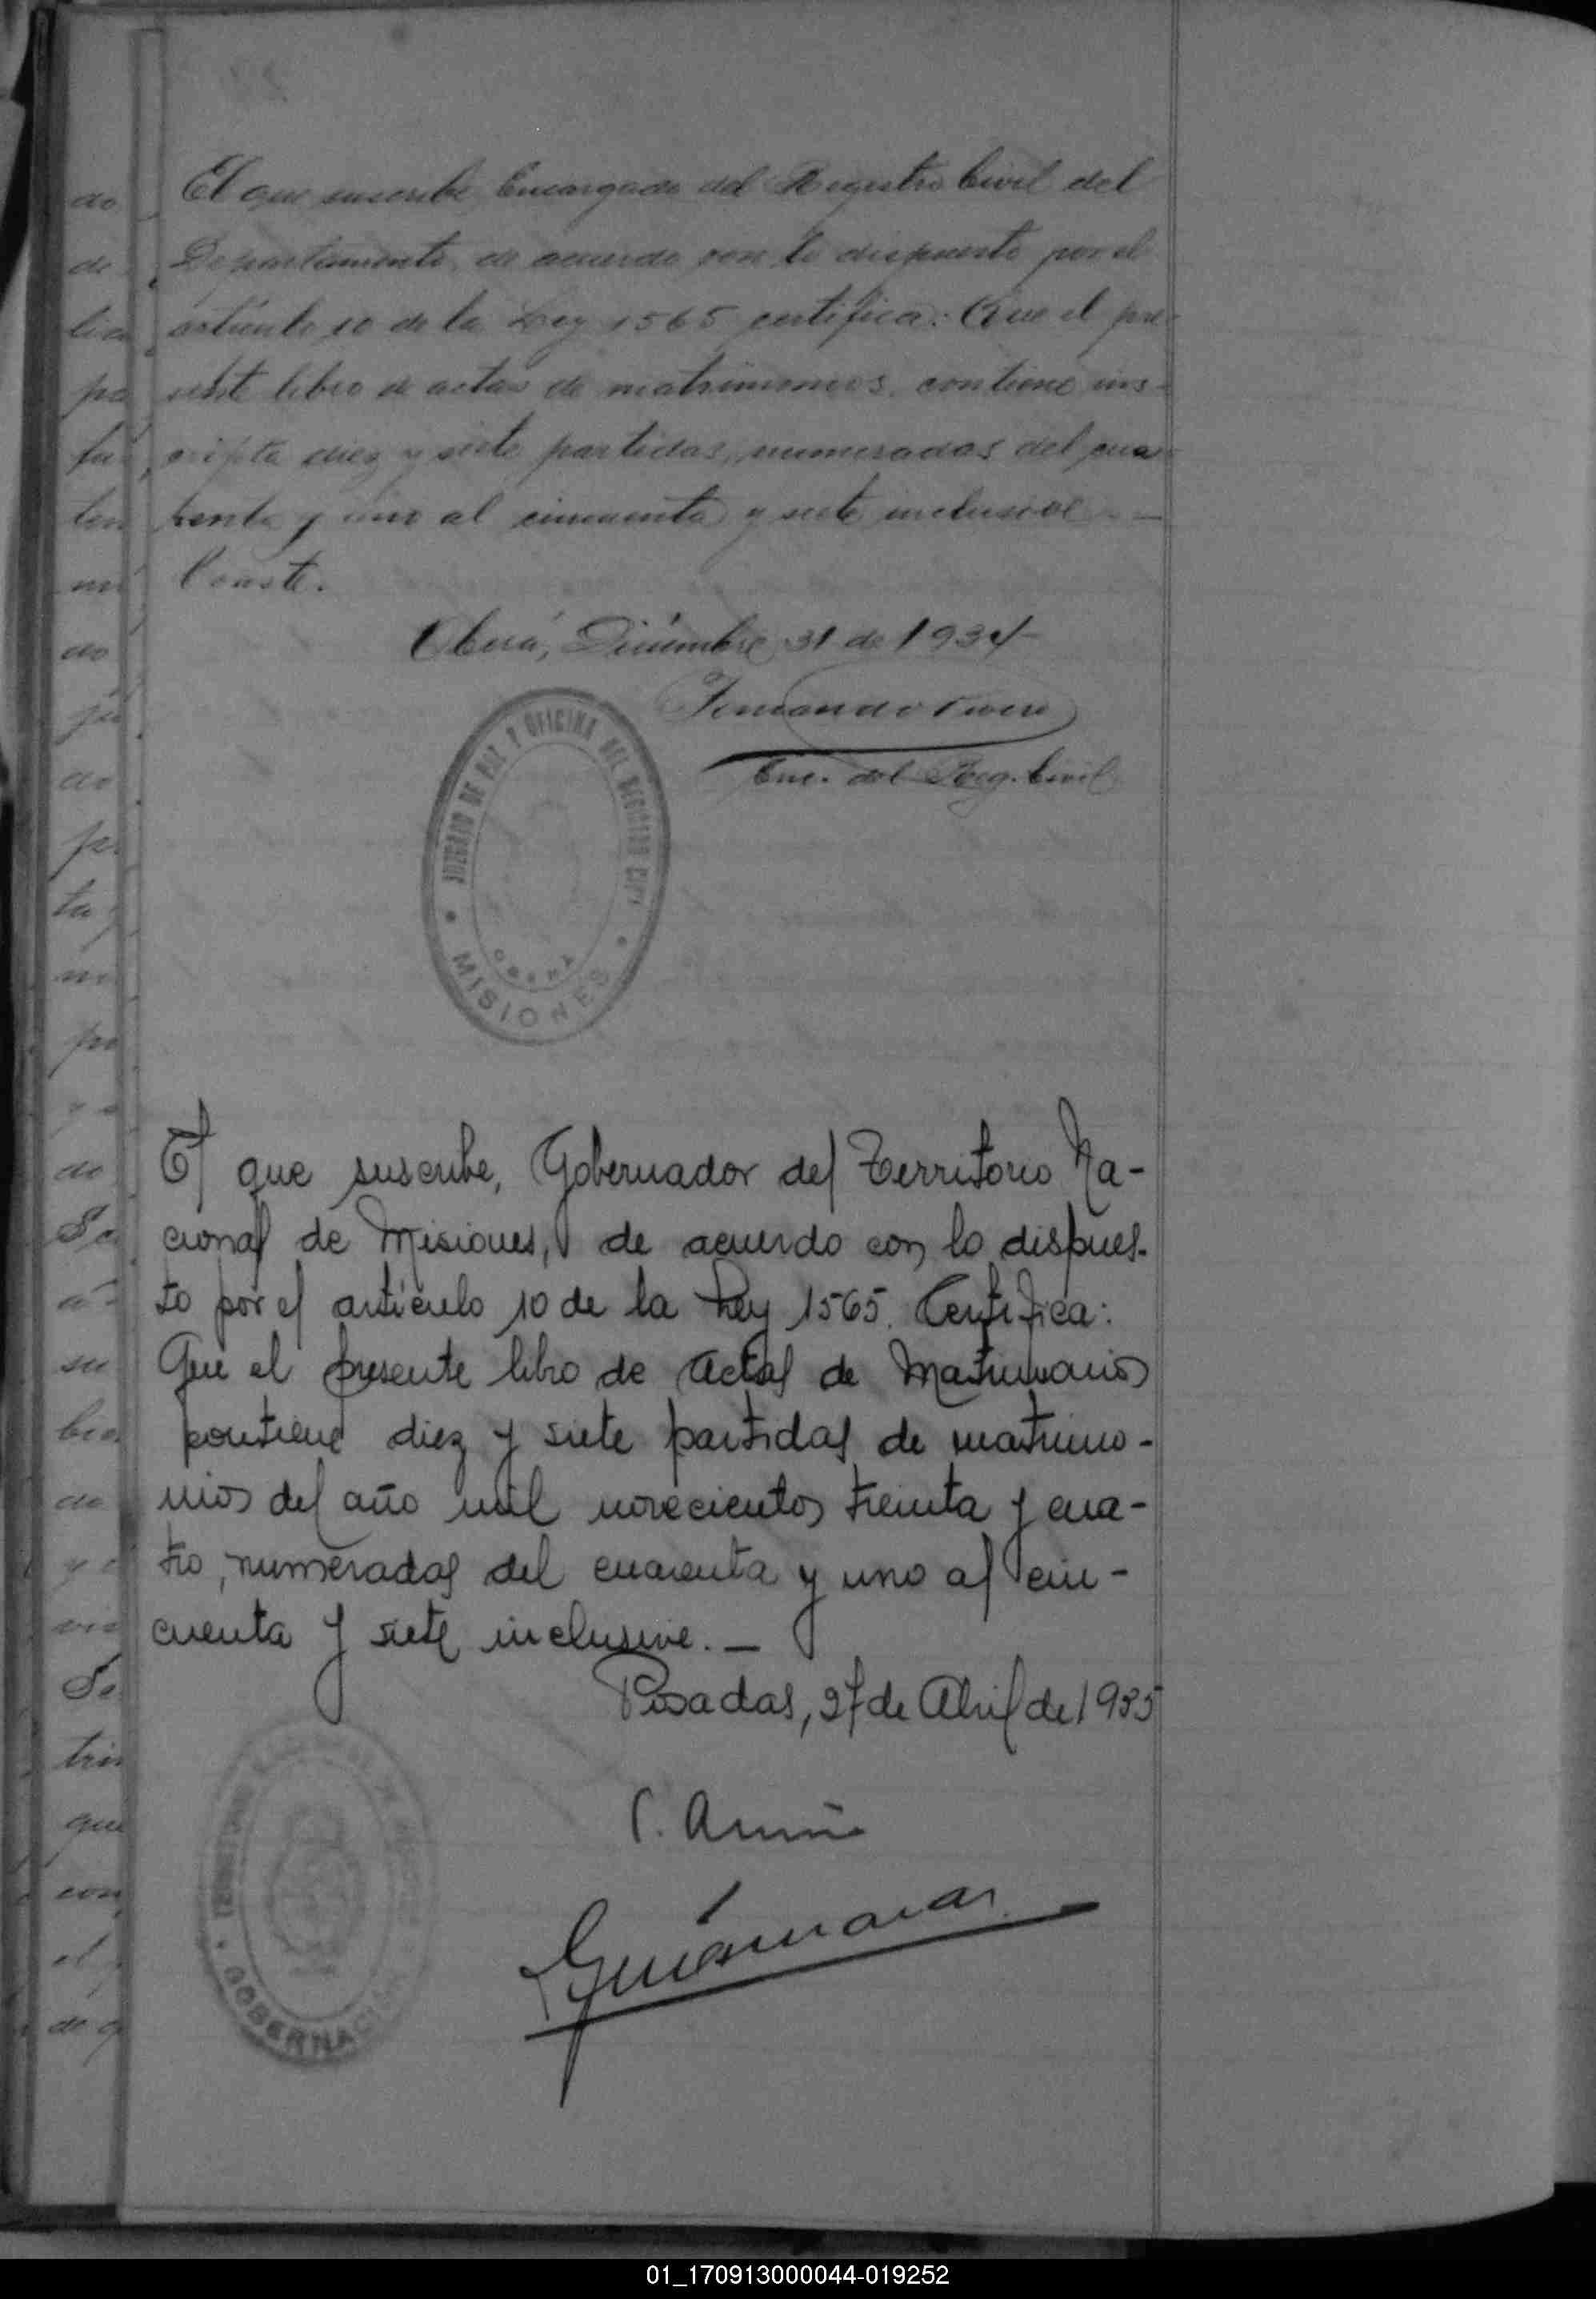 El que suscribe, Encargado del Registro Civil del
Departamento, de acuerdo con lo dispuesto por el
artículo 10 de la Ley 1565 certifica: Que el pre-
sente libro de actas de matrimonios, contiene ins-
cripta diez y siete partidas, numeradas del cua-
renta y uno al cincuenta y siete inclusive.—
Conste.
Oberá, Diciembre 31 de 1934
Fernando
Enc. del Reg. Civil
JUZGADO DE PAZ Y OFICINA DEL REGISTRO CIVIL
OBERÁ
MISIONES
El que suscribe, Gobernador del Territorio Na-
cional de Misiones, de acuerdo con lo dispues-
to por el artículo 10 de la Ley 1565. Certifica:
Que el presente libro de Actas de Matrimonios
contiene diez y siete partidas de matrimo-
nios del año mil novecientos treinta y cua-
tro, numeradas del cuarenta y uno al cin-
cuenta y siete inclusive.—
Posadas, 27 de Abril de 1935
GOBERNACIÓN
01_170913000044-019252